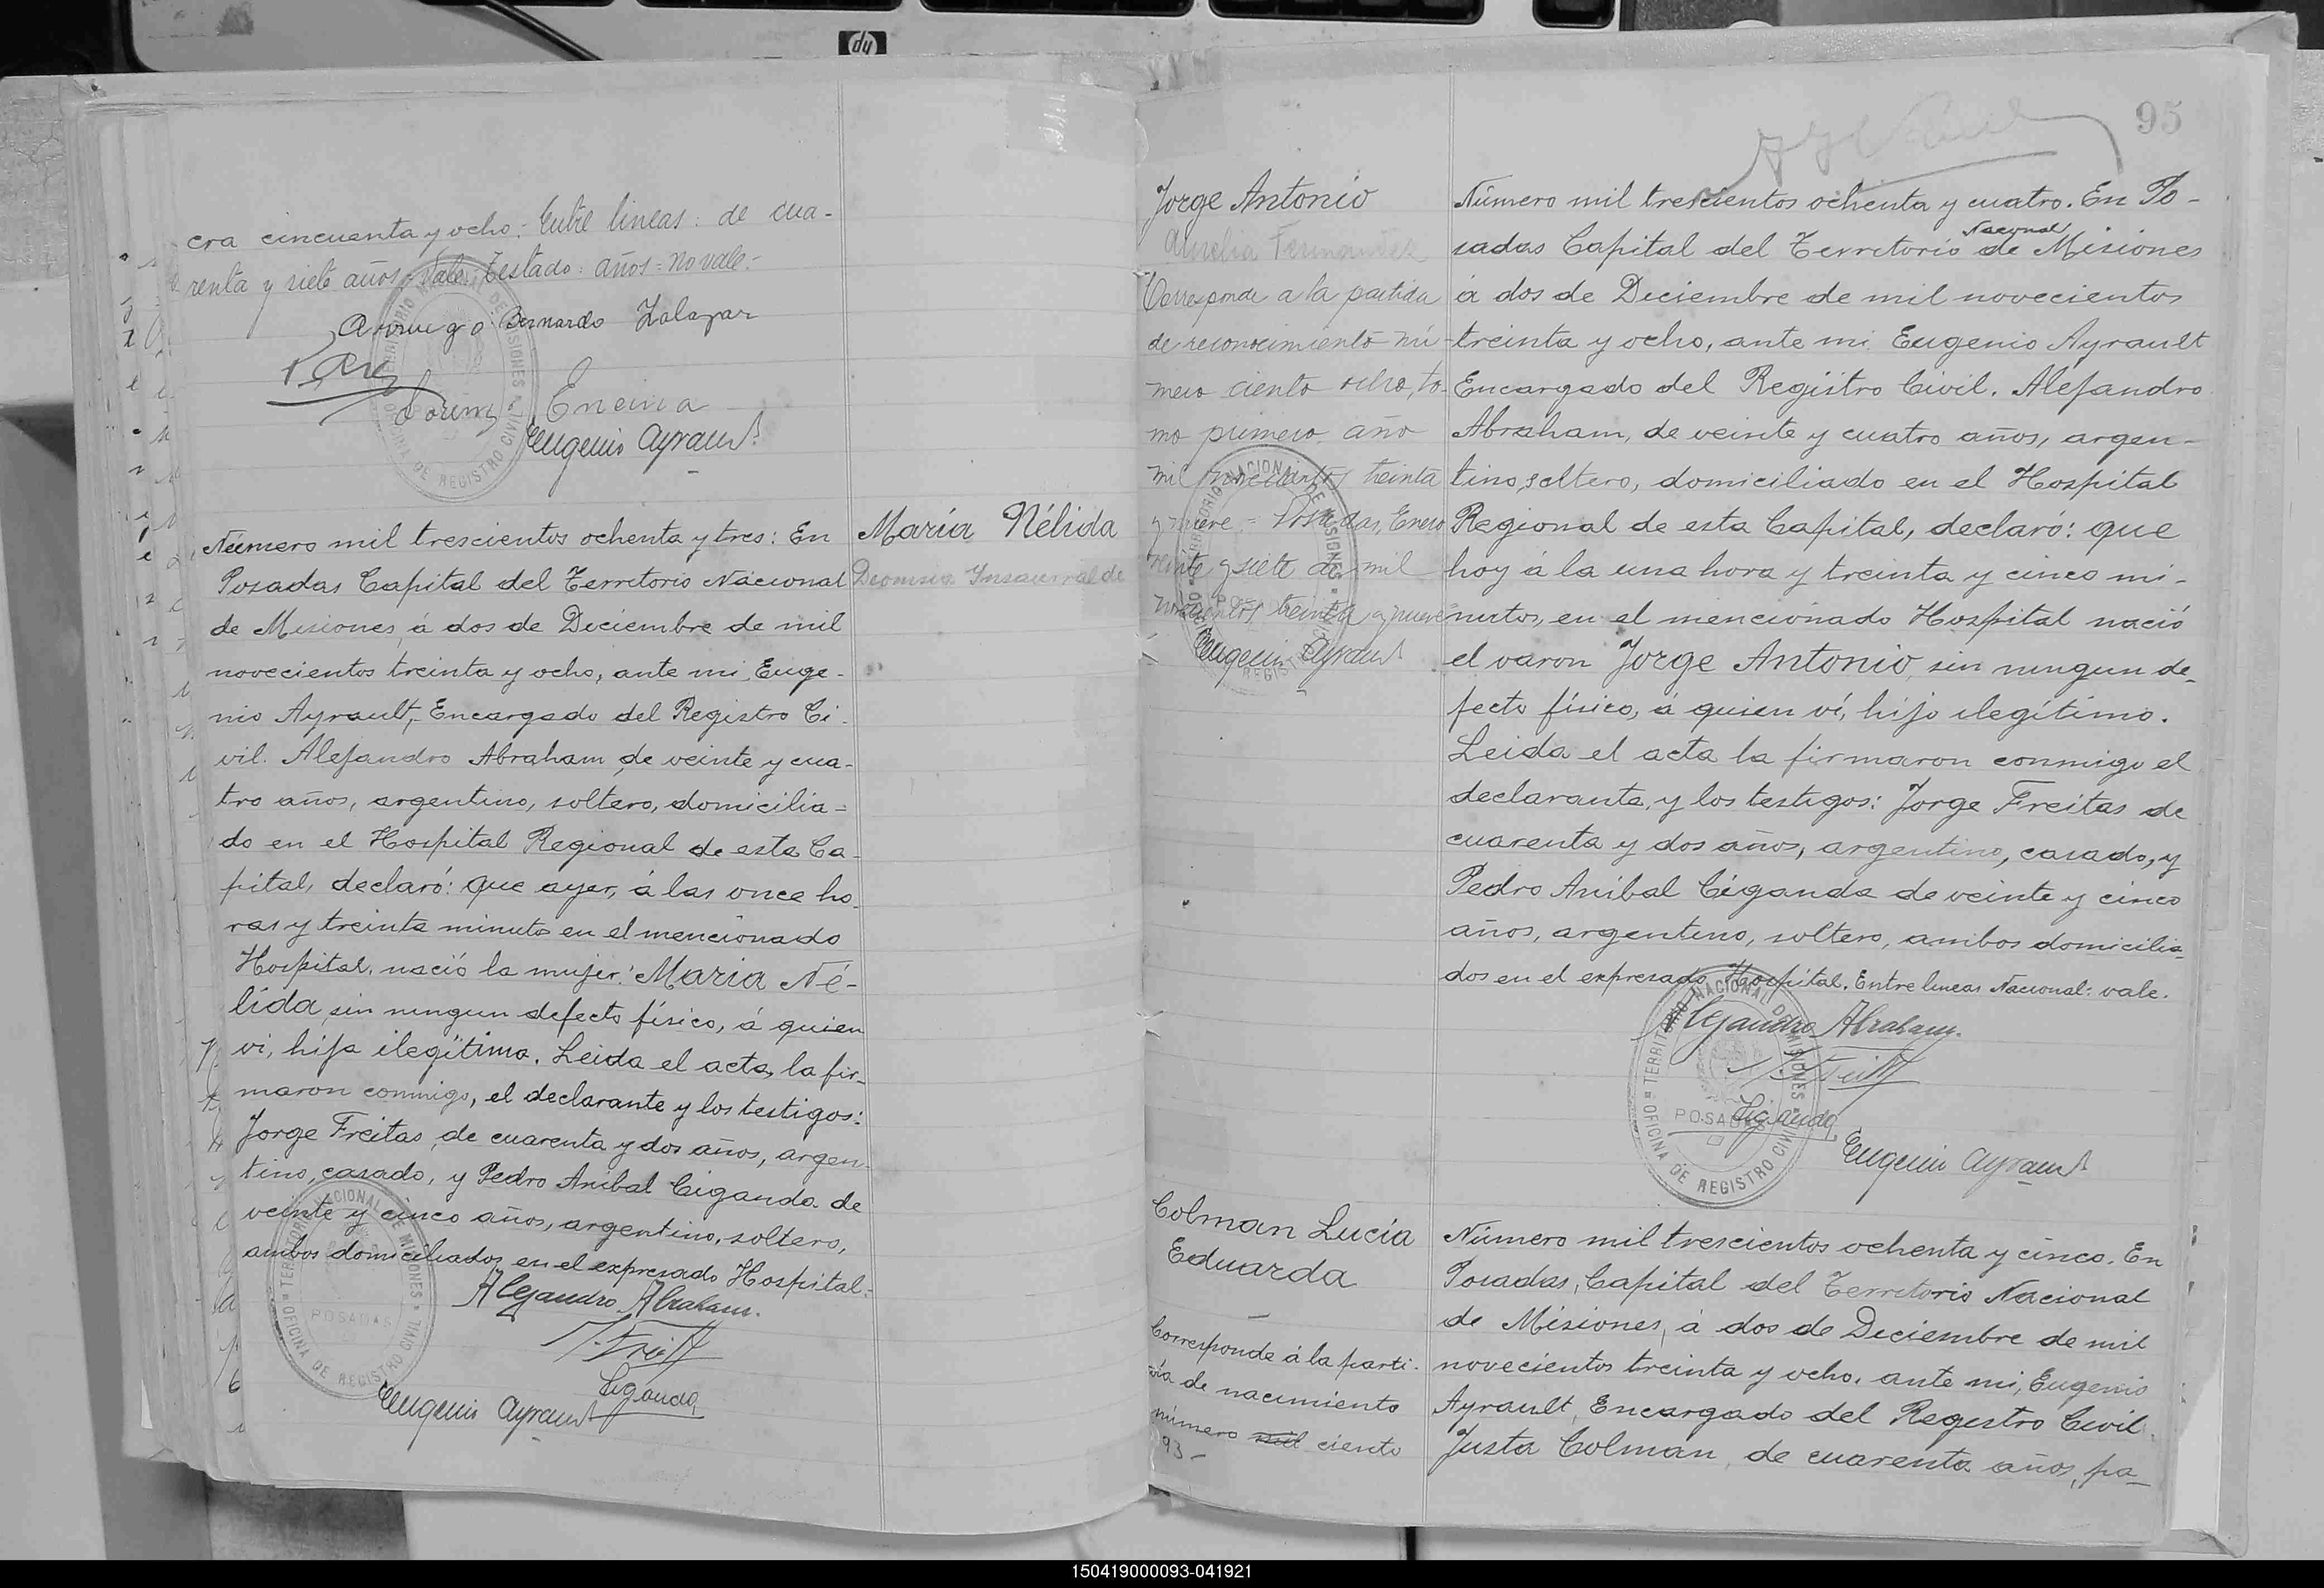 cra cincuenta y ocho: Entre lineas: de cua-
renta y siete años = Vale: Testado: años = no vale.-
Bernardo Zalazar
Encina
Eugenio Ayrault
Número mil trescientos ochenta y tres: En
Posadas Capital del Territorio Nacional
de Misiones, á dos de Diciembre de mil
novecientos treinta y ocho, ante mi, Euge-
nio Ayrault, Encargado del Registro Ci-
vil. Alejandro Abraham, de veinte y cua-
tro años, argentino, soltero, domicilia-
do en el Hospital Regional de esta Ca-
pital, declaró: que ayer, á las once ho-
ras y treinta minutos en el mencionado
Hospital, nació la mujer: Maria Né-
lida, sin ningun defecto físico, á quien
vi, hija ilegítima. Leida el acta, la fir-
maron conmigo, el declarante y los testigos:
Jorge Freitas, de cuarenta y dos años, argen-
tino, casado, y Pedro Anibal Ciganda de
veinte y cinco años, argentino, soltero,
ambos domiciliados en el expresado Hospital.
Alejandro Abraham.
J. Freitas
Ciganda
Eugenio Ayrault
TERRITORIO NACIONAL DE MISIONES
OFICINA DE REGISTRO CIVIL
POSADAS
María Nélida
Dionisia Insaurralde
95
Jorge Antonio
Aurelia Fernandez
Corresponde a la partida
de reconocimiento nú-
mero ciento ocho, to-
mo primero, año
mil novecientos treinta
y nueve = Posadas, Enero
veinte y siete de mil
novecientos treinta y nueve
Eugenio Ayrault
Número mil trescientos ochenta y cuatro. En Po-
Nacional
sadas Capital del Territorio de Misiones
á dos de Diciembre de mil novecientos
treinta y ocho, ante mi Eugenio Ayrault
Encargado del Registro Civil. Alejandro
Abraham, de veinte y cuatro años, argen-
tino, soltero, domiciliado en el Hospital
Regional de esta Capital, declaró: que
hoy á la una hora y treinta y cinco mi-
nutos, en el mencionado Hospital nació
el varon Jorge Antonio, sin ningun de-
fecto físico, á quien ví, hijo ilegítimo.
Leida el acta la firmaron conmigo el
declarante, y los testigos: Jorge Freitas de
cuarenta y dos años, argentino, casado, y
Pedro Aníbal Ciganda de veinte y cinco
años, argentino, soltero, ambos domicilia-
dos en el expresado Hospital. Entre lineas Nacional: vale.
Alejandro Abraham.
J. Freitas
Ciganda
Eugenio Ayrault
TERRITORIO NACIONAL DE MISIONES
OFICINA DE REGISTRO CIVIL
POSADAS
Colman Lucía
Eduarda
Corresponde á la parti-
da de nacimiento
número mil ciento
93-
Número mil trescientos ochenta y cinco. En
Posadas, Capital del Territorio Nacional
de Misiones, á dos de Diciembre de mil
novecientos treinta y ocho, ante mi, Eugenio
Ayrault, Encargado del Registro Civil.
Justa Colman, de cuarenta años, pa-
150419000093-041921